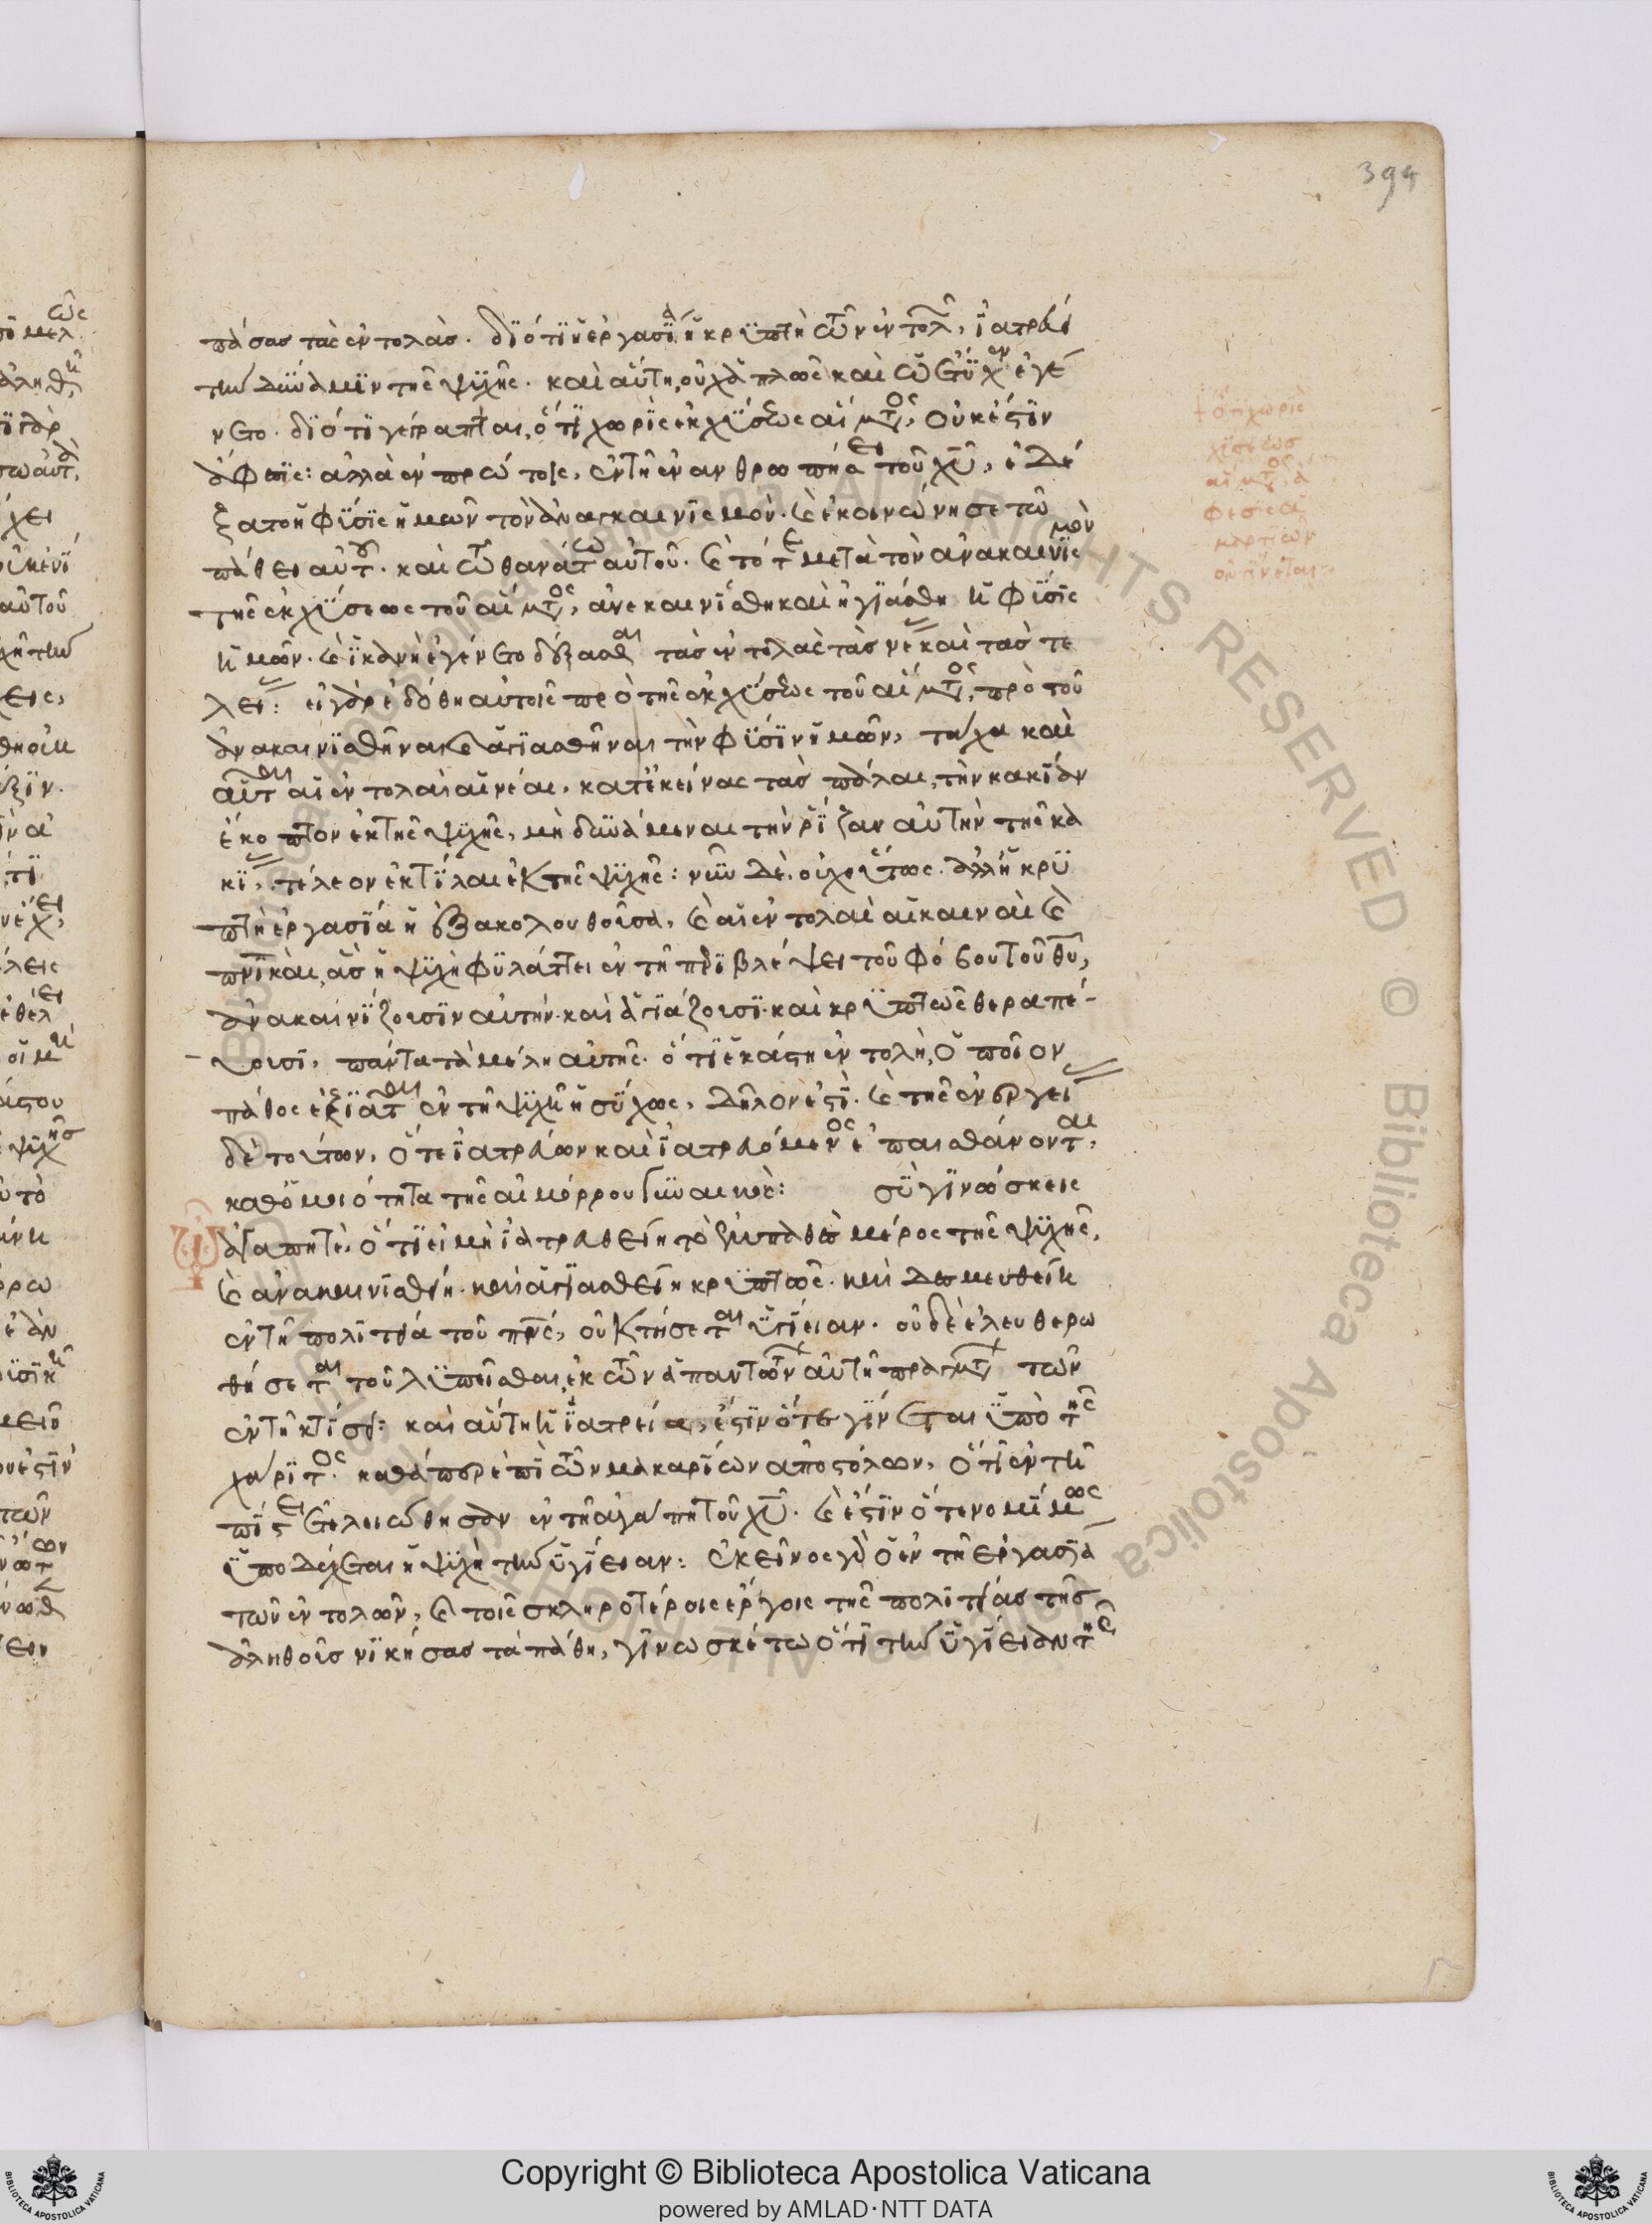 394
πάσας τὰς ἐντολάς. διότι ἡ ἐργασία ἡ κρυπτὴ τῶν ἐντολ, ἰατρεύει
τὴν δύναμιν τῆς ψυχῆς. καὶ αὕτη, οὐχ ἁπλῶς καὶ ὡς ἔτυχεν ἐγέ
νετο. διότι γέγραπται, ὅτι χωρὶς ἐκχύσεως αἵματος, οὐκ ἔστιν
ἄφεσις: ἀλλὰ ἐν πρώτοις, ἐν τῇ ἐνανθρωπήσει τοῦ χυ, ἐδέ
ξατο ἡ φύσις ἡμῶν τὸν ἀνακαινισμόν. καὶ ἐκοινώνησε τῶ
πάθει αὐτοῦ. καὶ τῶ θανάτω αὐτοῦ. καὶ τότε μετὰ τὸν ἀνακαινισμὸν
τῆς ἐκχύσεως τοῦ αἵματος, ἀνεκαινίσθη καὶ ἡγιάσθη ἡ φύσις
ἡμῶν. καὶ ἱκανὴ ἐγένετο δέξασθαι τὰς ἐντολὰς τὰς νέ καὶ τὰς τε
λεί: εἰ γὰρ ἐδόθη αὐτοῖς πρὸ τῆς ἐκχύσεως τοῦ αἵματος, πρὸ τοῦ
ἀνακαινισθῆναι καὶ ἁγιασθῆναι τὴν φύσιν ἡμῶν, τάχα καὶ
αὗται αἱ ἐντολαὶ αἱ νέαι, κατ' ἐκείνας τὰς πάλαι, τὴν κακίαν
ἔκοπτον ἐκ τῆς ψυχῆς, μὴ δυνάμεναι τὴν ῥίζαν αὐτὴν τῆς κα
κί, τέλεον ἐκτίλαι ἐκ τῆς ψυχῆς: νῦν δὲ, οὐχ οὕτως. ἀλλ' ἡ κρυ
πτὴ ἐργασία ἡ ἐξακολουθοῦσα, καὶ αἱ ἐντολαὶ αἱ καιναὶ καὶ
πνικαὶ, ἃς ἡ ψυχὴ φυλάττει ἐν τῇ περιβλέψει τοῦ φόβου τοῦ θυ,
ἀνακαινίζουσιν αὐτὴν. καὶ ἁγιάζουσι. καὶ κρυπτῶς θεραπεύ-
-ουσι, πάντα τὰ μέλη αὐτῆς. ὅτι ἑκάστη ἐντολὴ, ὁποῖον
πάθος ἐξιᾶται ἐν τῇ ψυχῇ ἡσύχως, δῆλον ἐστί. καὶ τῆς ἐνεργεί
δὲ τούτων, ὅ τε ἰατρεύων καὶ ἰατρευόμενος ἐπαισθάνονται,
καθ' ὁμοιότητα τῆς αἱμόρρου γυναικός: σὺ γινώσκεις
ἀγαπητέ, ὅτι εἰ μὴ ἰατρευθείη τὸ ἐμπαθὲς μέρος τῆς ψυχῆς,
καὶ ἀνακαινισθῇ. καὶ ἁγιασθείη κρυπτῶς. καὶ δεσμευθείη
ἐν τῇ πολιτεία τοῦ πνς, οὐ κτήσεται ὑγίειαν. οὐδὲ ἐλευθερω
θήσεται τοῦ λυπεῖσθαι, ἐκ τῶν ἀπαντώντων αὐτῇ πραγμάτων τῶν
ἐν τῇ κτίσει: καὶ αὕτη ἡ ἰατρεία, ἔστιν ὅτε γίνεται ὑπὸ τῆς
χάριτος. καθάπερ ἐπὶ τῶν μακαρίων ἀποστόλων, ὅτι ἐν τῇ
πίστει ἐτελειώθησαν ἐν τῇ ἀγάπη τοῦ χυ. καὶ ἔστιν ὅτε νομίμως
ὑποδέχεται ἡ ψυχὴ τὴν ὑγίειαν: ἐκεῖνος γὰρ ὁ ἐν τῇ ἐργασία
τῶν ἐντολῶν, καὶ τοῖς σκληροτέροις ἔργοις τῆς πολιτείας τῆς
ἀληθοῦς νικήσας τὰ πάθη, γινωσκέτω ὅτι τὴν ὑγίειαν τῆς
ὅτι χωρὶς
χύσεως
αἵματος ἄ
φεσις ἁ
μαρτιῶν
οὐ γίνεται
Copyright © Biblioteca Apostolica Vaticana
powered by AMLAD·NTT DATA